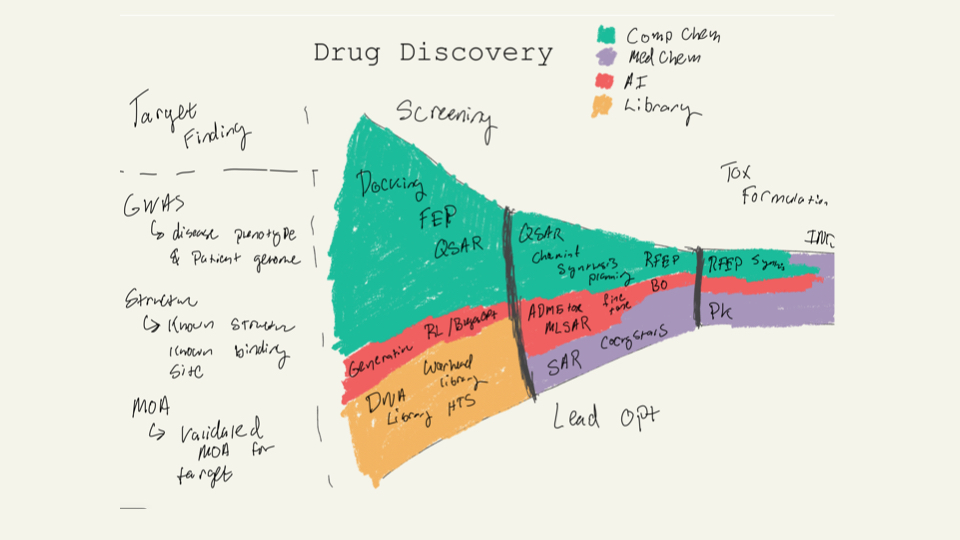 Drug Discovery
Comp Chem
Med Chem
AI
Library
Target
Finding
GWAS
↳ disease phenotype
& Patient genome
Structure
↳ Known Structure
Known binding
Site
MOA
↳ Validated
MOA for
target
Screening
Docking
FEP
QSAR
Generative RL /
DNA
Library HTS
Warhead
library
QSAR
Chemint
Synthesis
planning
RFEP
BO
ADME tox
MLSAR
fine
tune
SAR
Cocrystals
Lead Opt
Tox
Formulation
RFEP
PK